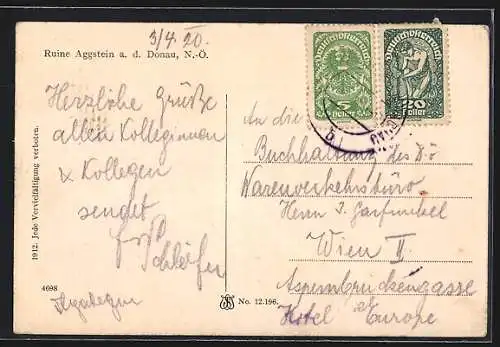 3/4.20.
Ruine Aggstein a. d. Donau, N.-Ö.
Deutschösterreich
5
Heller
Deutschösterreich
20
Heller
Herzliche Grüße
allen Kolleginnen
& Kollegen
sendet
1912. Jede Vervielfältigung verboten.
4698
No. 12.196.
An die
Buchhaltung des D.ö
Warenverkehrsbüro
Herrn J. Garfunkel
Wien II
Aspernbrückengasse
Hotel Europe